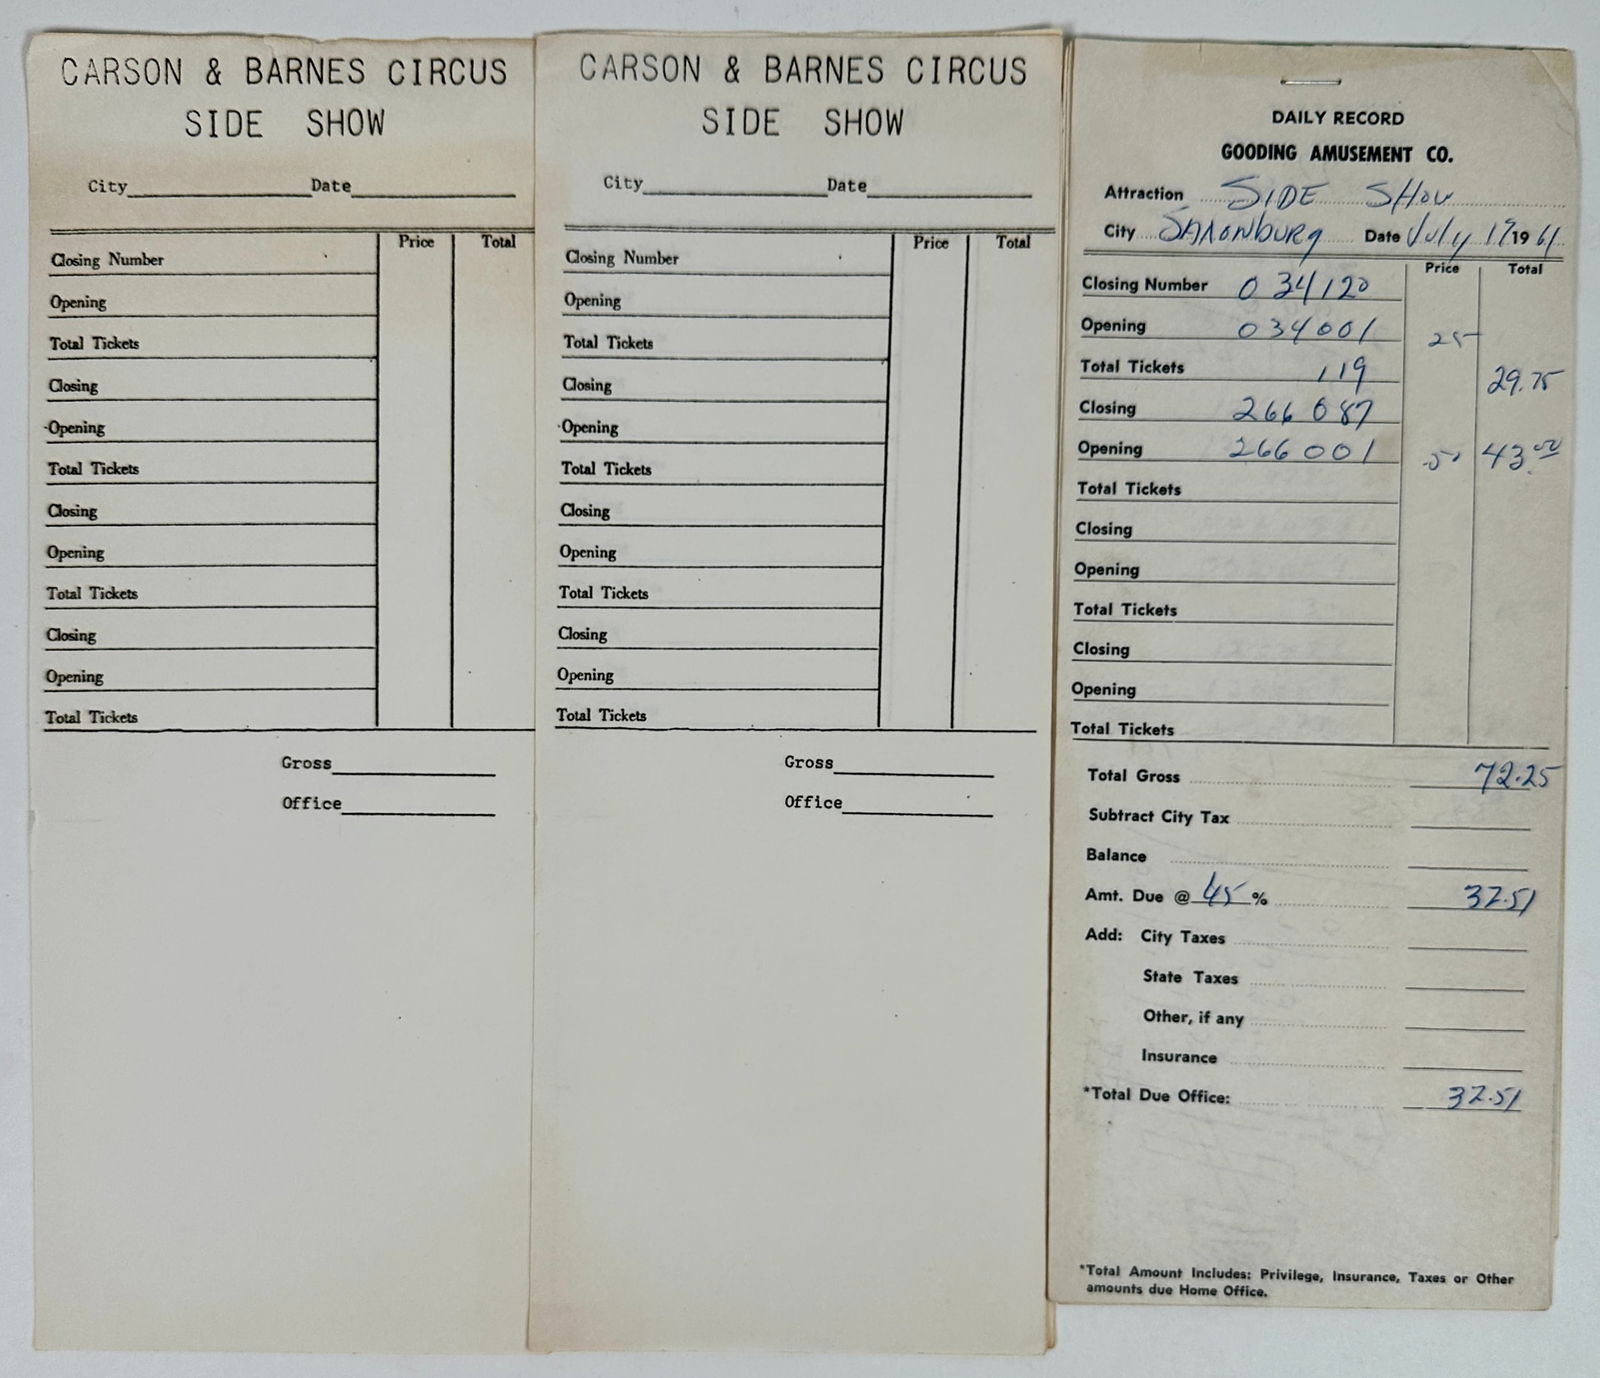 CARSON & BARNES CIRCUS
SIDE SHOW
City Date
Price Total
Closing Number
Opening
Total Tickets
Closing
Opening
Total Tickets
Closing
Opening
Total Tickets
Closing
Opening
Total Tickets
Gross
Office
CARSON & BARNES CIRCUS
SIDE SHOW
City Date
Price Total
Closing Number
Opening
Total Tickets
Closing
Opening
Total Tickets
Closing
Opening
Total Tickets
Closing
Opening
Total Tickets
Gross
Office
DAILY RECORD
GOODING AMUSEMENT CO.
Attraction SIDE SHOW
City SAXONBURG Date July 17 19 61
Price Total
Closing Number 034120
Opening 034001 25
Total Tickets 119 29.75
Closing 266087
Opening 266001 .50 43.00
Total Tickets
Closing
Opening
Total Tickets
Closing
Opening
Total Tickets
Total Gross 72.25
Subtract City Tax
Balance
Amt. Due @ 45 % 32.51
Add: City Taxes
State Taxes
Other, if any
Insurance
*Total Due Office: 32.51
*Total Amount Includes: Privilege, Insurance, Taxes or Other
amounts due Home Office.